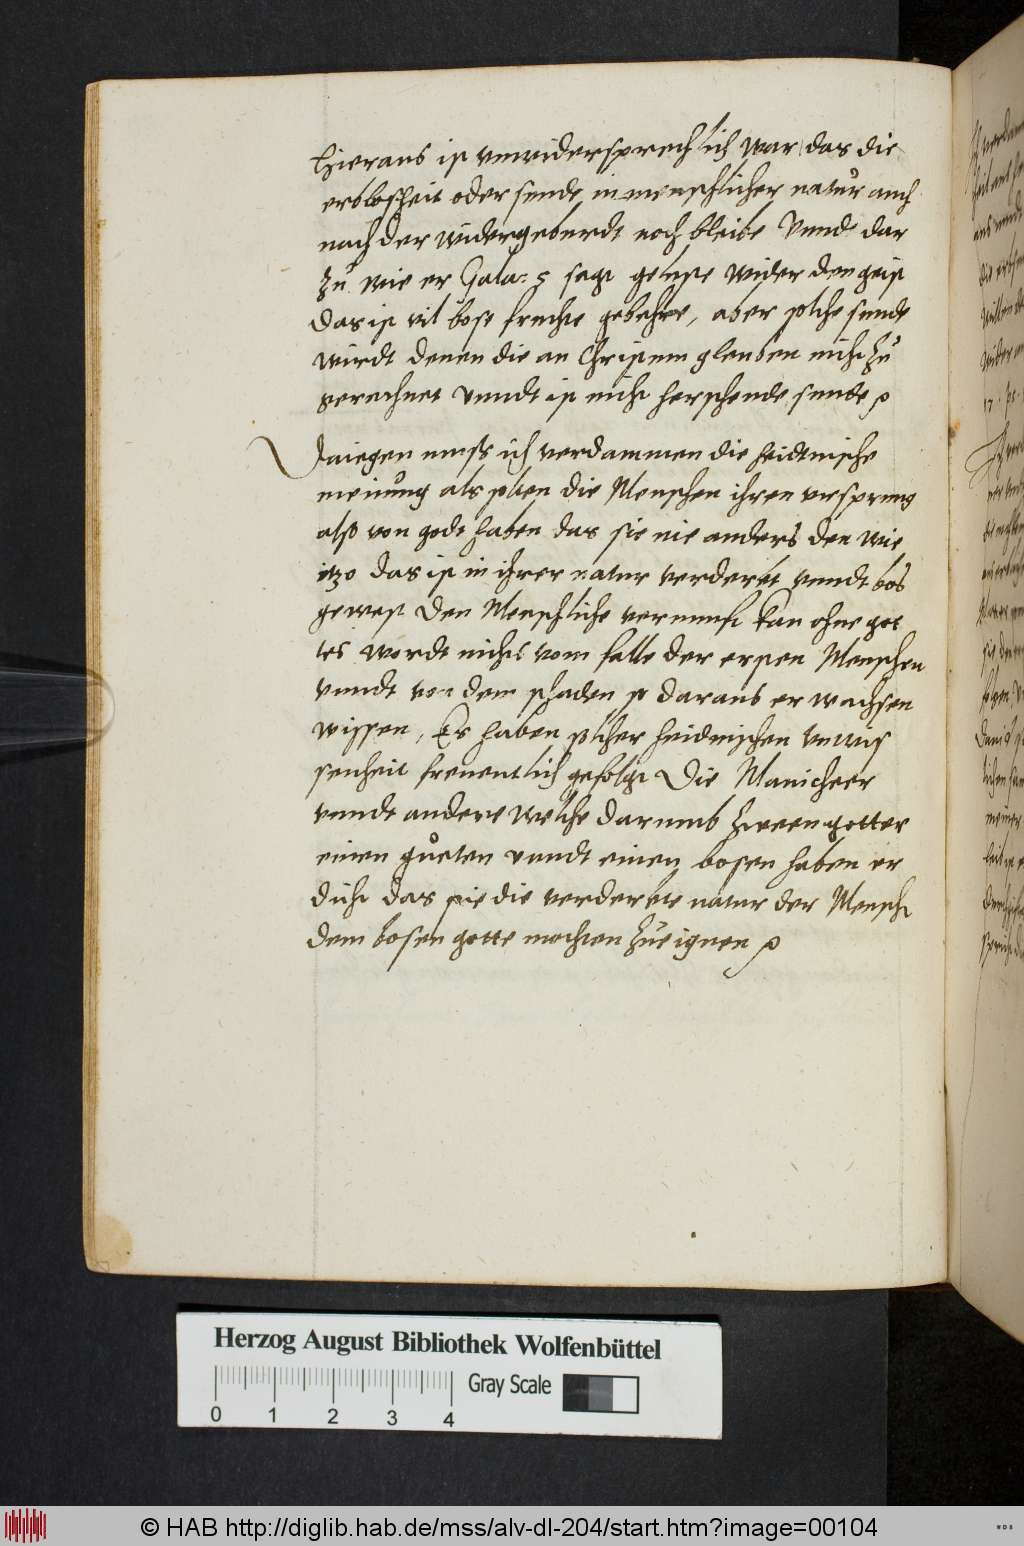 Hieraus ist vnwidersprechlich war das die
erbbosheit oder sunde in menschlicher natur auch
nach der widergeburdt noch bleibe Vnnd dar
zu wie er Gala: 5 sagt geluste wider den geist
das ist vil bose fruchte gebehre, aber solche sunde
wirdt denen die an Christum gleuben nicht zu
gerechnet vnndt ist nicht herschende sunde
Daiegen muss ich verdammen die heidtnische
meinung als solten die Menschen ihren vrsprung
also von godt haben das sie nie anders den wie
itzo das ist in ihrer natur verderbt vnndt bos
gewest Den Menschliche vernunft kan ohne got
tes wordt nichts vom falle der ersten Menschen
vnndt von dem schaden so daraus erwachsen
wissen, Es haben solcher heidnischen vnwis
senheit freuentlich gefolgt Die Manicheer
vnndt andere welche darumb zween gotter
einen gueten vnndt einen bosen haben er
dicht das sie die verderbte natur der Mensch
dem bosen gotte mochten zueignen
Herzog August Bibliothek Wolfenbüttel
Gray Scale
0 1 2 3 4
© HAB http://diglib.hab.de/mss/alv-dl-204/start.htm?image=00104